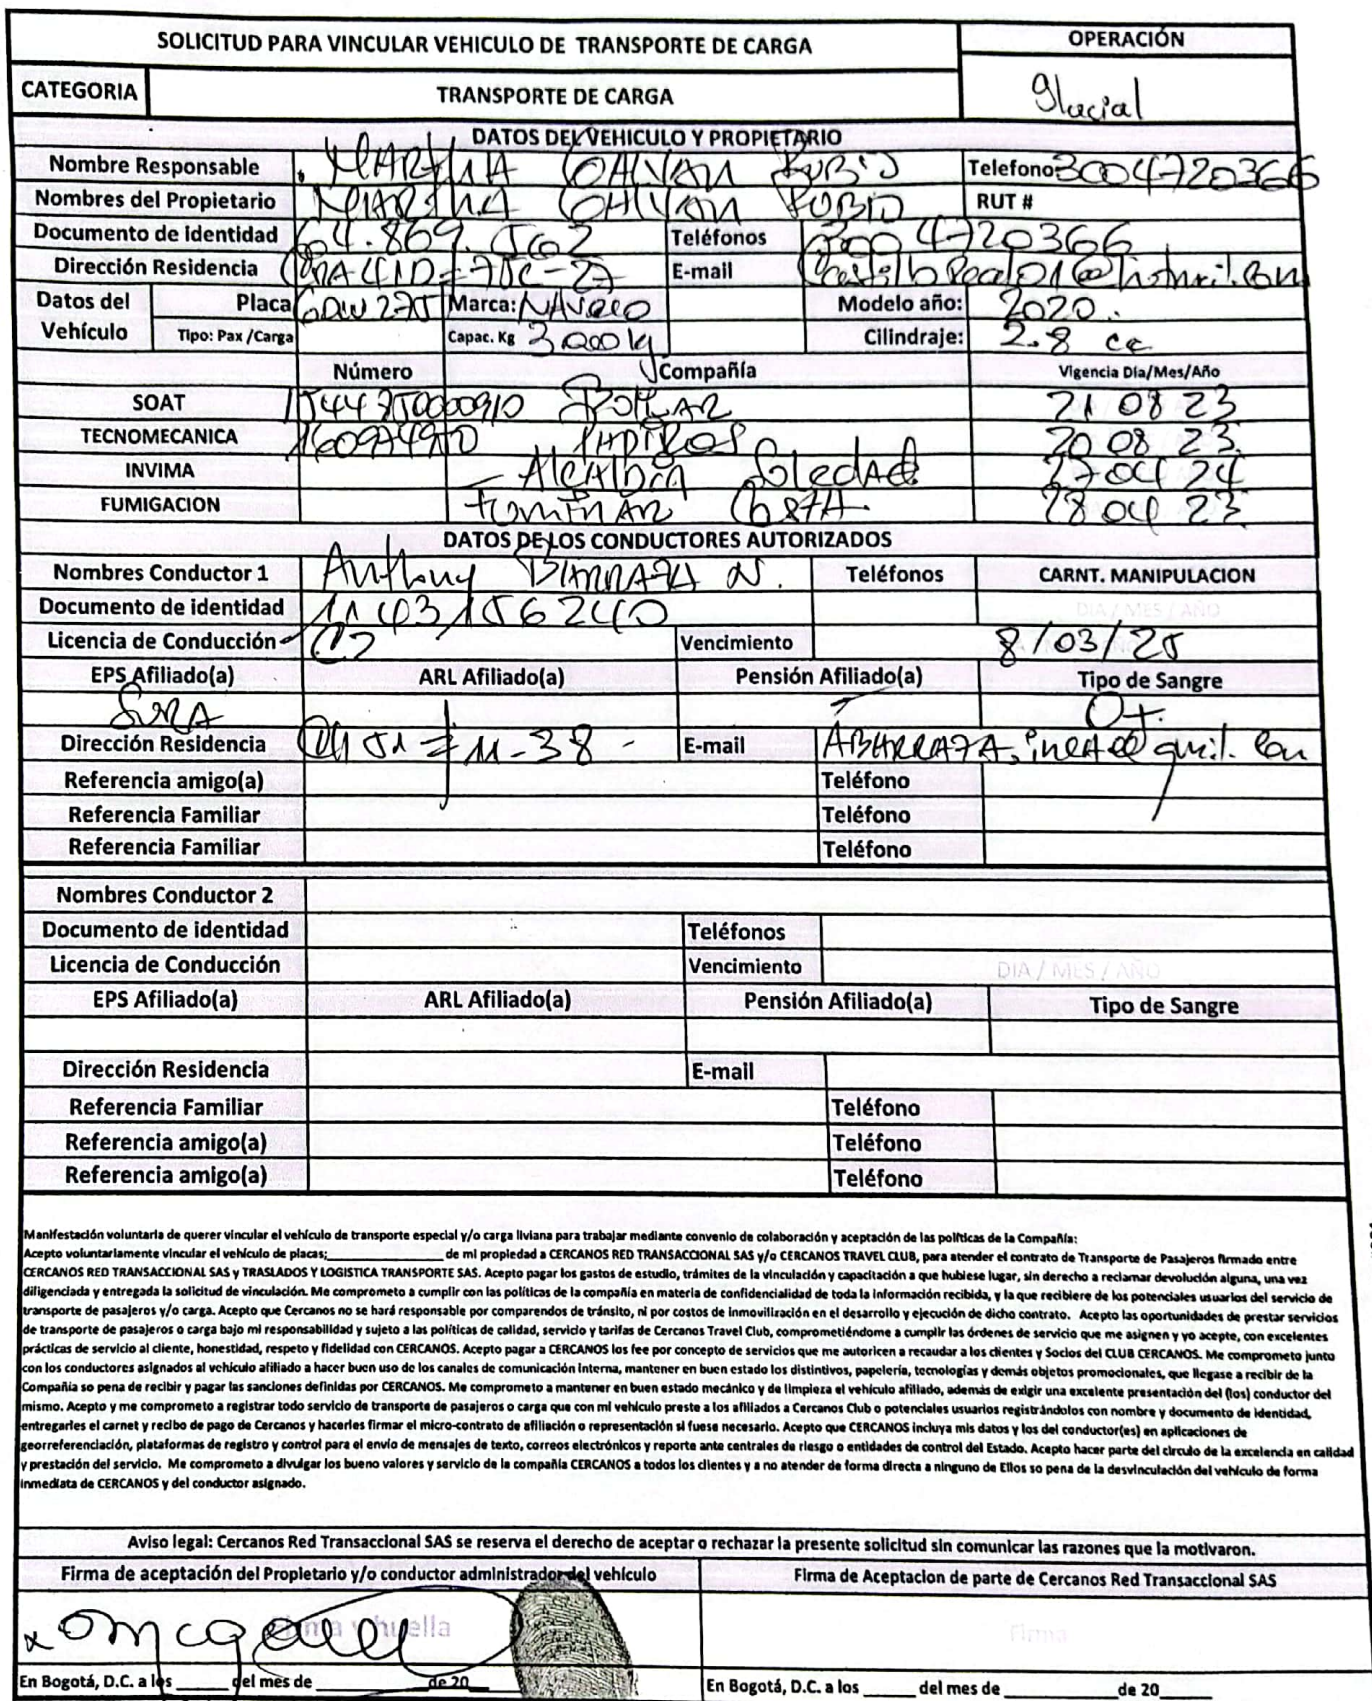 SOLICITUD PARA VINCULAR VEHICULO DE TRANSPORTE DE CARGA
OPERACIÓN
CATEGORIA
TRANSPORTE DE CARGA
Glacial
DATOS DEL VEHICULO Y PROPIETARIO
Nombre Responsable MARTHA GALVAN RUBIO Telefono 3004720366
Nombres del Propietario MARTHA GALVAN RUBIO RUT #
Documento de identidad 64.869.562 Teléfonos 300 4720366
Dirección Residencia CRA 41D = 75C-27 E-mail
Datos del Vehículo Placa Marca: Modelo año: 2020.
Tipo: Pax /Carga Capac. Kg 3000 kg Cilindraje: 2.8 cc
Número Compañía Vigencia Día/Mes/Año
SOAT BOLIVAR 21 08 23
TECNOMECANICA 20 08 23
INVIMA - Alcaldia Soledad 27 04 24
FUMIGACION COSTA. 28 04 23
DATOS DE LOS CONDUCTORES AUTORIZADOS
Nombres Conductor 1 Anthony BARRAZA N. Teléfonos CARNT. MANIPULACION
Documento de identidad 1143156240 DIA / MES / AÑO
Licencia de Conducción C2 Vencimiento 8/03/25
EPS Afiliado(a) ARL Afiliado(a) Pensión Afiliado(a) Tipo de Sangre
SURA O+.
Dirección Residencia 51 # 11-38 - E-mail
Referencia amigo(a) Teléfono
Referencia Familiar Teléfono
Referencia Familiar Teléfono
Nombres Conductor 2
Documento de identidad Teléfonos
Licencia de Conducción Vencimiento DIA / MES / AÑO
EPS Afiliado(a) ARL Afiliado(a) Pensión Afiliado(a) Tipo de Sangre
Dirección Residencia E-mail
Referencia Familiar Teléfono
Referencia amigo(a) Teléfono
Referencia amigo(a) Teléfono
Manifestación voluntaria de querer vincular el vehículo de transporte especial y/o carga liviana para trabajar mediante convenio de colaboración y aceptación de las políticas de la Compañía:
Acepto voluntariamente vincular el vehículo de placas;____________________ de mi propiedad a CERCANOS RED TRANSACCIONAL SAS y/o CERCANOS TRAVEL CLUB, para atender el contrato de Transporte de Pasajeros firmado entre
CERCANOS RED TRANSACCIONAL SAS y TRASLADOS Y LOGISTICA TRANSPORTE SAS. Acepto pagar los gastos de estudio, trámites de la vinculación y capacitación a que hubiese lugar, sin derecho a reclamar devolución alguna, una vez
diligenciada y entregada la solicitud de vinculación. Me comprometo a cumplir con las políticas de la compañía en materia de confidencialidad de toda la información recibida, y la que recibiere de los potenciales usuarios del servicio de
transporte de pasajeros y/o carga. Acepto que Cercanos no se hará responsable por comparendos de tránsito, ni por costos de inmovilización en el desarrollo y ejecución de dicho contrato. Acepto las oportunidades de prestar servicios
de transporte de pasajeros o carga bajo mi responsabilidad y sujeto a las políticas de calidad, servicio y tarifas de Cercanos Travel Club, comprometiéndome a cumplir las órdenes de servicio que me asignen y yo acepte, con excelentes
prácticas de servicio al cliente, honestidad, respeto y fidelidad con CERCANOS. Acepto pagar a CERCANOS los fee por concepto de servicios que me autoricen a recaudar a los clientes y Socios del CLUB CERCANOS. Me comprometo junto
con los conductores asignados al vehículo afiliado a hacer buen uso de los canales de comunicación interna, mantener en buen estado los distintivos, papelería, tecnologías y demás objetos promocionales, que llegase a recibir de la
Compañía so pena de recibir y pagar las sanciones definidas por CERCANOS. Me comprometo a mantener en buen estado mecánico y de limpieza el vehículo afiliado, además de exigir una excelente presentación del (los) conductor del
mismo. Acepto y me comprometo a registrar todo servicio de transporte de pasajeros o carga que con mi vehículo preste a los afiliados a Cercanos Club o potenciales usuarios registrándolos con nombre y documento de identidad,
entregarles el carnet y recibo de pago de Cercanos y hacerles firmar el micro-contrato de afiliación o representación si fuese necesario. Acepto que CERCANOS incluya mis datos y los del conductor(es) en aplicaciones de
georreferenciación, plataformas de registro y control para el envío de mensajes de texto, correos electrónicos y reporte ante centrales de riesgo o entidades de control del Estado. Acepto hacer parte del circulo de la excelencia en calidad
y prestación del servicio. Me comprometo a divulgar los bueno valores y servicio de la compañía CERCANOS a todos los clientes y a no atender de forma directa a ninguno de Ellos so pena de la desvinculación del vehículo de forma
inmediata de CERCANOS y del conductor asignado.
Aviso legal: Cercanos Red Transaccional SAS se reserva el derecho de aceptar o rechazar la presente solicitud sin comunicar las razones que la motivaron.
Firma de aceptación del Propietario y/o conductor administrador del vehículo
Firma de Aceptacion de parte de Cercanos Red Transaccional SAS
Firma y huella
Firma
En Bogotá, D.C. a los _____ del mes de __________ de 20___
En Bogotá, D.C. a los _____ del mes de __________ de 20___